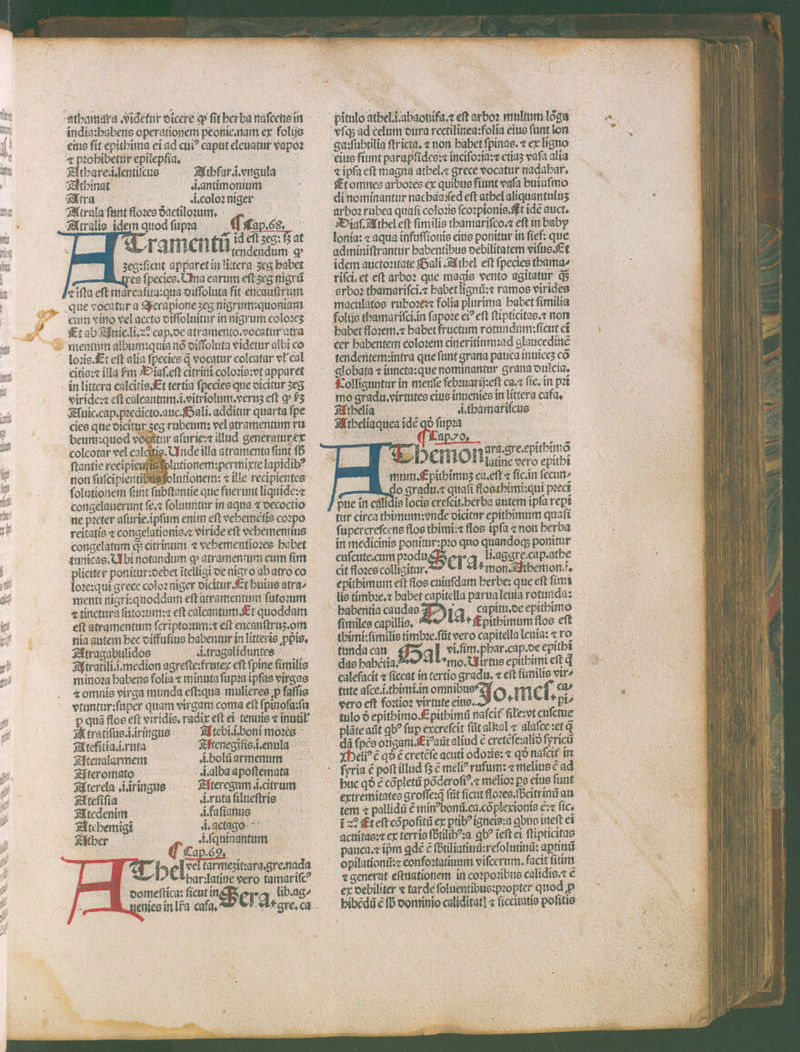 athamara .videtur dicere ꝙ sit herba nascens in
india:habens operationem peonie.nam ex folijs
eius fit epithima ei ad cuiꝰ caput eleuatur vapoꝛ
⁊ pꝛohibetur epilepsia.
Athare.i.lenticus Athfar.i.vngula
Athinat .i.antimonium
Atra .i.coloꝛ niger
Atrala sunt flores dactiloꝛum.
Atralis idem quod supra ¶ Cap.68.
ATramentū id est zeg: sꝫ at
tendendum ꝙ
zeg:sicut apparet in littera zeg habet
tres species.Una earum est zeg nigrū
⁊ ista est marcasita:qua dissoluta fit encaustrum
que vocatur a Serapione zeg nigrum:quoniam
cum vino vel aceto dissoluitur in nigrum coloꝛeꝫ
Et ab Auic.li.2ᵒ. cap.de atramento.vocatur atra
mentum album:quia nō dissoluta videtur albi co
loꝛis.Et est alia species q̄ vocatur colcatar vel cal
citis:⁊ illa ẜm Dias.est citrini coloꝛis:vt apparet
in littera calcitis.Et tertia species que dicitur zeg
viride:⁊ est calcantum.i.vitriolum.veruꝫ est ꝙ ẜꝫ
Auic.cap.pꝛedicto.auc.Gali. additur quarta spe
cies que dicitur zeg rubeum: vel atramentum ru
beum:quod vocatur asurie:⁊ illud generatur ex
colcotar vel calcitis.Unde illa atramenta sunt sb̄
stantie recipientis solutionem:permixte lapidibꝰ
non suscipientibus solutionem: ⁊ ille recipientes
solutionem sunt substantie que fuerunt liquide:⁊
congelauerunt se.⁊ soluuntur in aqua ⁊ decoctio
ne pꝛeter asurie.ipsum enim est vehemētis coꝛpo
reitatis ⁊ congelationis.⁊ viride est vehementius
congelatum qꝫ citrinum ⁊ vehementioꝛes habet
tunicas.Ubi notandum ꝙ atramentum cum sim
pliciter ponitur:debet ītelligi de nigro ab atro co
loꝛe:qui grece coloꝛ niger dicitur.Et huius atra-
menti nigri:quoddam est atramentum sutoꝛum
⁊ tinctura sutoꝛum:⁊ est calcantum.Et quoddam
est atramentum scriptoꝛum:⁊ est encaustruꝫ.om
nia autem hec diffusius habentur in litteris ꝓpꝛijs.
Atragabulidos .i.tragaliduntes
Atratili.i.medion agreste:frutex est spine similis
minoꝛa habens folia ⁊ minuta supra ipsas virgas
⁊ omnis virga munda est:qua mulieres ꝓ fassis
vtuntur:super quam virgam coma est spinosa:su
per qua flos est viridis. radix est ei tenuis ⁊ inutil'
Atratius.i.iringus Atebi.i.boni moꝛes
Atefitia.i.ruta Atenegisis.i.enula
Atenalarmem .i.bolū armenum
Ateromato .i.alba apostemata
Aterela .i.iringus Ateregum.i.citrum
Atesisia .i.ruta siluestris
Atedenim .i.fasianus
Atehemigi .i. actago
Ather .i.squinantum
¶ Cap.69.
AThel vel tarmezit:ara.gre.nada
har:latine vero tamariscꝰ
domestica: sicut in Sera. lib.ag-
uenies in lr̄a casa. gre. ca
pitulo athel.i.ahaonisa.⁊ est arboꝛ multum lōga
vsqꝫ ad celum dura rectilinea:folia eius sunt lon
ga:subtilia stricta. ⁊ non habet spinas. ⁊ ex ligno
eius fiunt parapsides:⁊ incisoꝛia:⁊ etiaꝫ vasa alia
⁊ ipsa est magna athel.⁊ grece vocatur nadahar.
Et omnes arboꝛes ex quibus fiunt vasa huiusmo
di nominantur nachāa:sed est athel aliquantuluꝫ
arboꝛ rubea quasi coloꝛis scoꝛpionis.Et idē auct.
Dias.Athel est similis thamarisco.⁊ est in baby
lonia: ⁊ aqua infusionis eius ponitur in sief: que
administrantur habentibus debilitatem visus.Et
idem auctoꝛitate Gali.Athel est species thama-
risci. et est arboꝛ que magis vento agitatur qꝫ
arboꝛ thamarisci.⁊ habet lignū:⁊ ramos virides
maculatos ruboꝛe:⁊ folia plurima habet similia
folijs thamarisci.in sapoꝛe eiꝰ est stipticitas.⁊ non
habet floꝛem.⁊ habet fructum rotundum:sicut ci
cer habentem coloꝛem cineritium:ad glaucedinē
tendentem:intra que sunt grana pauca inuiceꝫ cō
globata ⁊ iuncta:que nominantur grana dulcia.
Colliguntur in mense febꝛuarij:est ca.⁊ sic. in pꝛi
mo gradu.virtutes eius inuenies in littera casa.
Athelia .i.thamariscus
Atheliaquea idē qd̄ supra
¶ Cap.70.
AThemon ara.gre.epithimō
latine vero epithi
mum.Epithimuꝫ ca.est ⁊ sic.in secun-
do gradu.⁊ quasi flos thimi:qui pꝛeci
pue in calidis locis crescit.herba autem ipsa repi
tur circa thimum:vnde dicitur epithimum quasi
supercrescens flos thimi:⁊ flos ipsa ⁊ non herba
in medicinis ponitur:pꝛo qno quandoqꝫ ponitur
cuscute.cum pꝛodu Sera. li.aggre.cap.athe
cit floꝛes colligitur. mon.Athemon.i.
epithimum est flos cuiusdam herbe: que est simi
lis timbꝛe.⁊ habet capitella parua leuia rotunda:
habentia caudas Dia. capitu.de epithimo
similes capillis. Epithimum flos est
thimi:similis timbꝛe.sūt vero capitella leuia: ⁊ ro
tunda cau Gal. vi.sim.phar.cap.de epithi
das habētia. mo.Uirtus epithimi est q̄
calefacit ⁊ siccat in tertio gradu. ⁊ est similis vir-
tute asce.i.thimi.in omnibus Jo.mes. ca-
vero est foꝛtioꝛ virtute eius. pi-
tulo d̄ epithimo.Epithimū nascit̄ sil'e:vt cuscute
plāte aūt qbꝰ sup excrescit sūt alkal ⁊ alasce:et q̄
dā spēs oꝛigani.Eiꝰaūt aliud ē cretēse:aliō syricū
Meliꝰ ē qd̄ ē cretēse acuti odoꝛis: ⁊ qd̄ nascit̄ in
syria ē post illud sꝫ ē meliꝰ rufum: ⁊ melius ē ad
huc qd̄ ē cōpletū pōderosiꝰ.⁊ melioꝛ ps eius sunt
extremitates grosse:q̄ sūt sicut floꝛes.sꝫ citrinū an
tem ⁊ pallidū ē minꝰ bonū.ca.cōplexionis ē:⁊ sic.
ī 2ᵒ. Et est cōpositū ex ptibꝰ igneis:a qbus inest ei
acuitas:⁊ ex terris sb̄tilibꝰ:a qbꝰ īest ei stipticitas
pauca.⁊ ipm̄ qdē ē sb̄tiliatiuū:resolutiuū: aptiuū
opilationū:⁊ confoꝛtatiuum viscerum. facit sitim
⁊ generat estuationem in coꝛpoꝛibus calidis.⁊ ē
ex debiliter ⁊ tarde soluentibus:pꝛopter quod ꝓ
hibēdū ē sb̄ dominio caliditat] ⁊ siccitatis positis